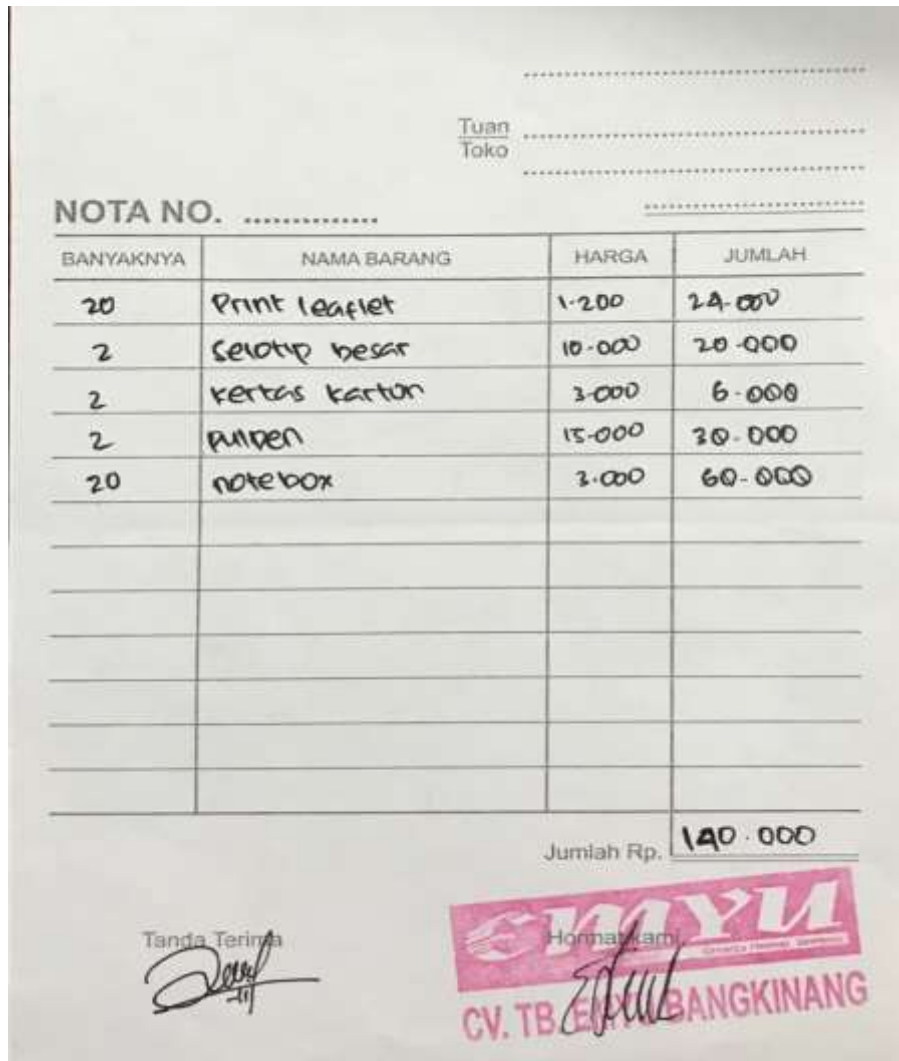 Tuan
Toko
NOTA NO. ..............
BANYAKNYA NAMA BARANG HARGA JUMLAH
20 Print leaflet 1.200 24.000
2 Selotip besar 10.000 20.000
2 kertas karton 3.000 6.000
2 pulpen 15.000 30.000
20 notebox 3.000 60.000
Jumlah Rp. 140.000
Tanda Terima Hormat kami,
MYU
CV. TB. BANGKINANG